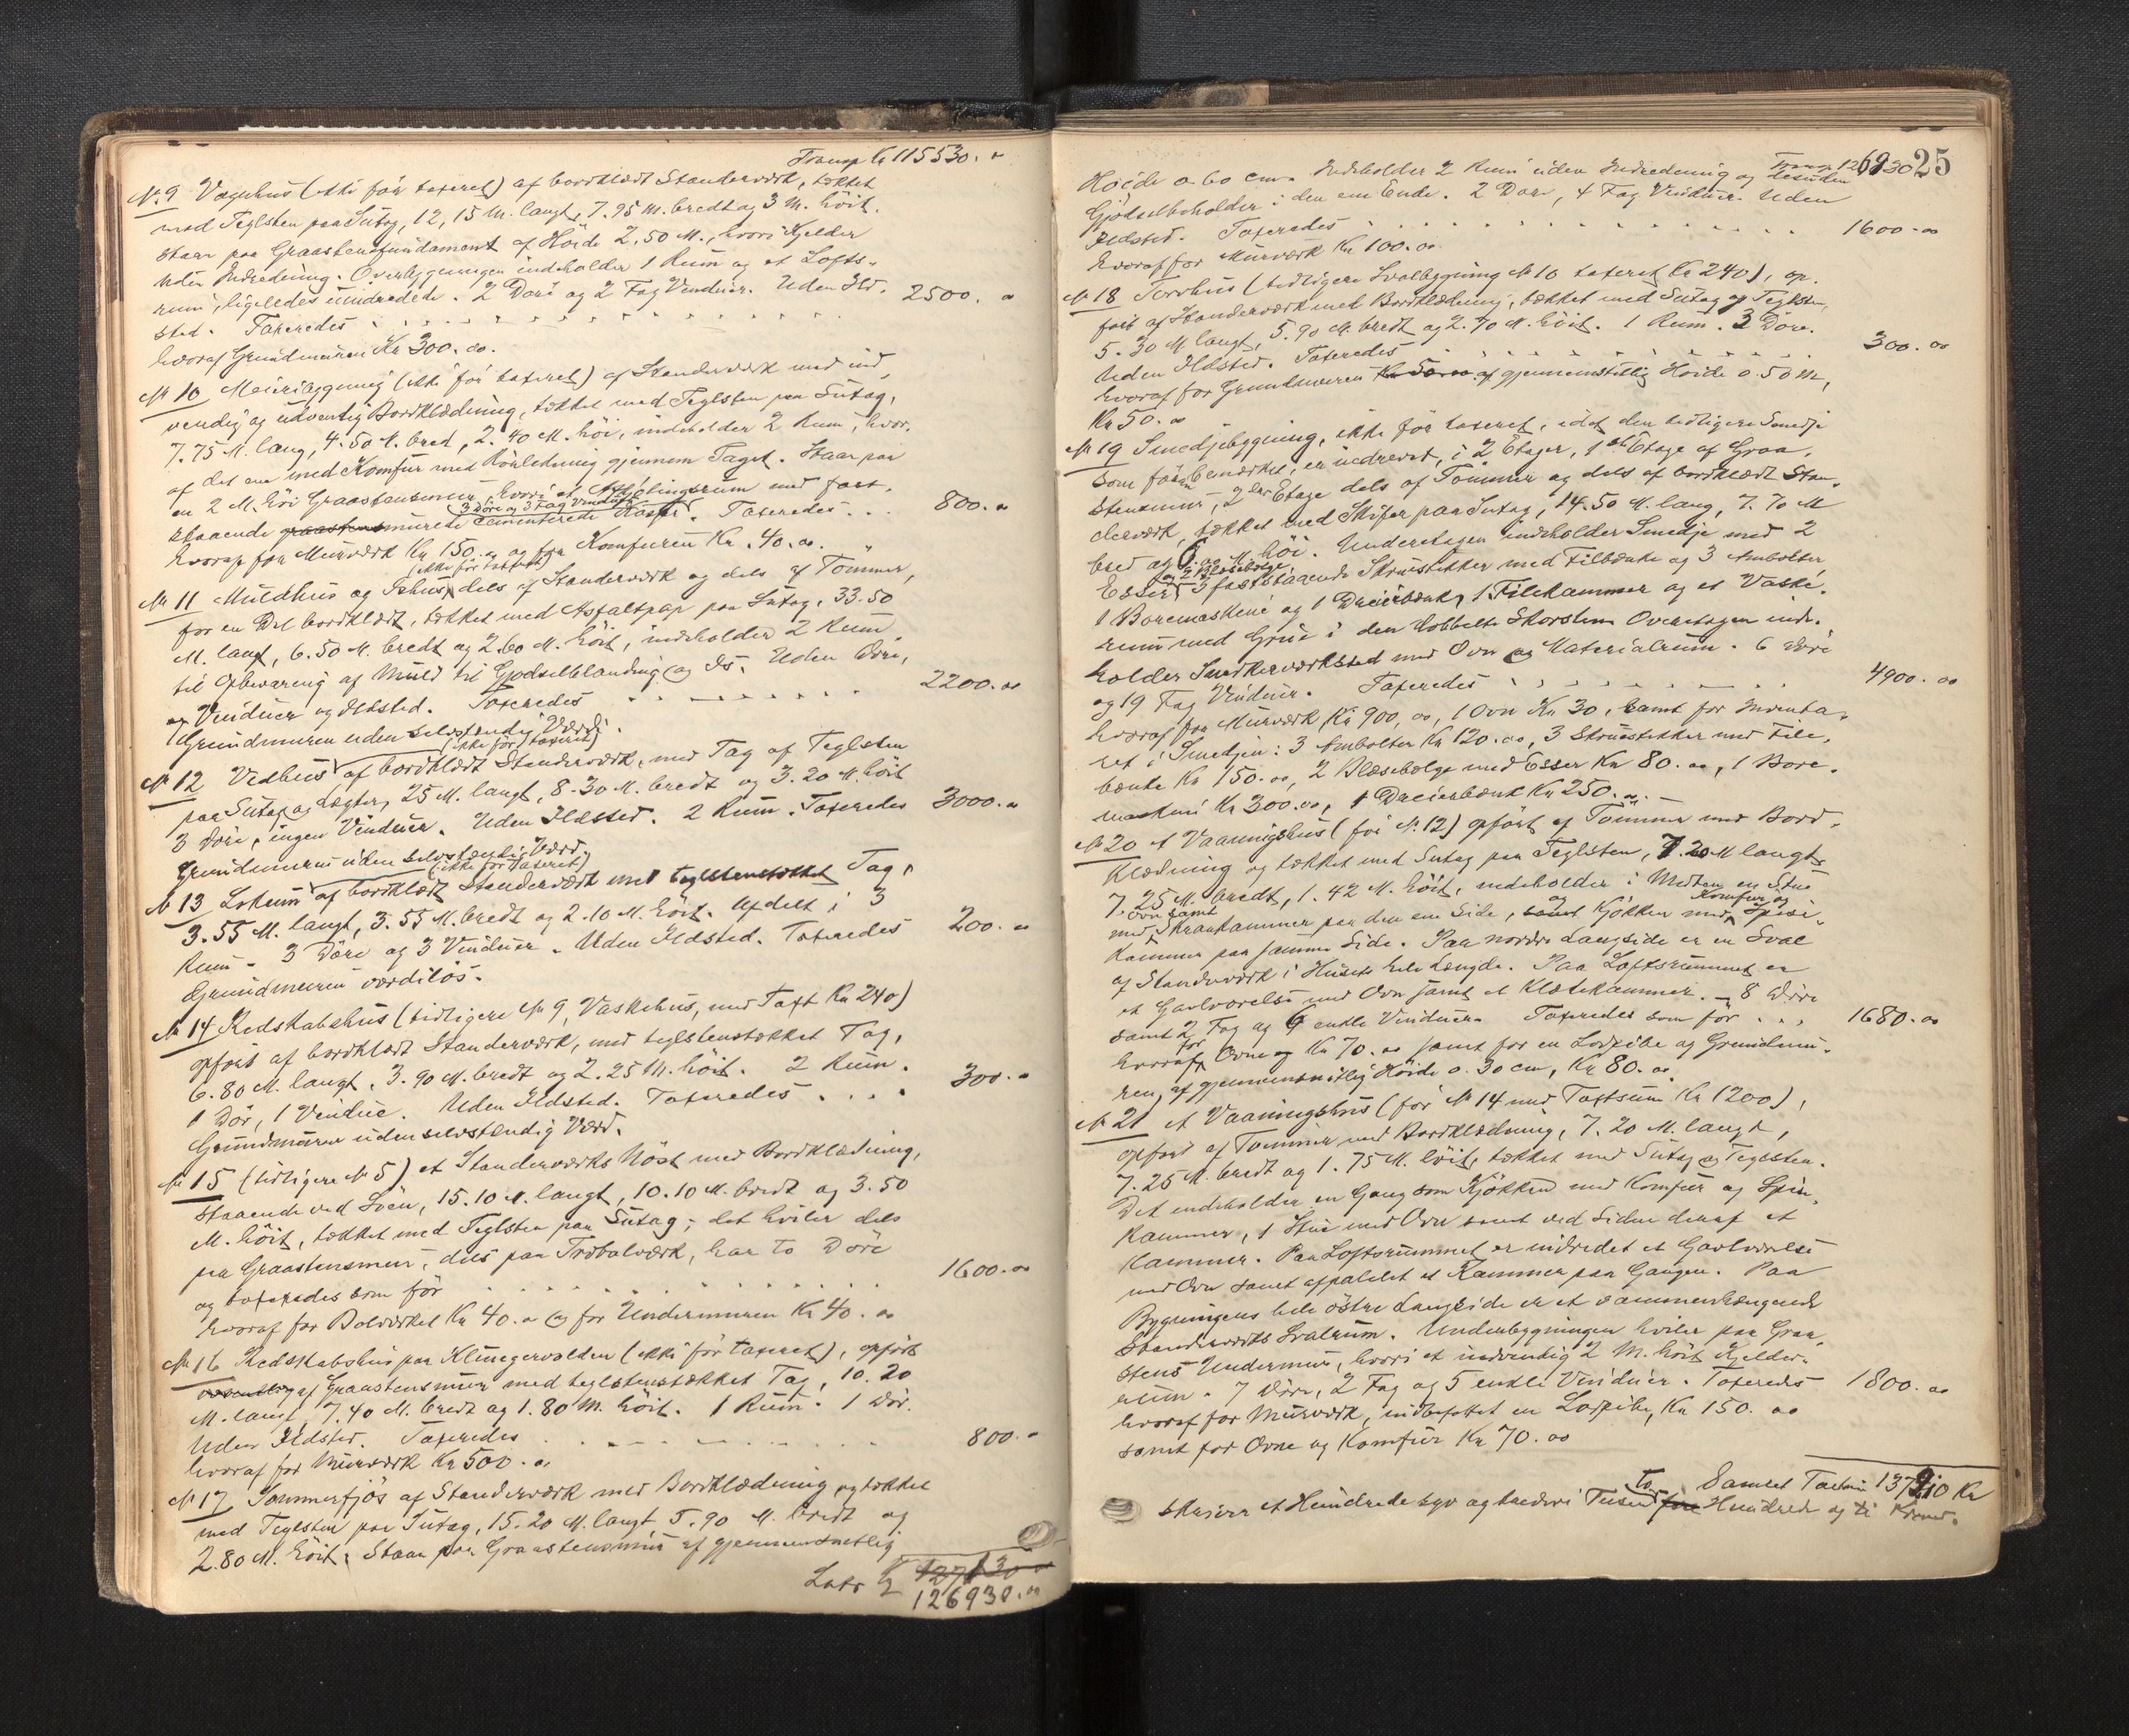 Transp Kr 115530. "
No 9 Vognhus (ikke før taxeret) af bordklædt Standerværk, tækket
med Teglsten paa Sutag, 12,15 M. langt, 7.95 M. bredt og 3 M. höit.
Staar paa Graastensfundament af Höide 2,50 M., hvori Kjelder
uden Indredning. Overbygningen indeholder 1 Rum og et Lofts-
rum, ligeledes uindredede. 2 Döre og 2 Fag Vinduer. Uden Ild-
sted. Taxeredes . . . 2500. "
hvoraf Grundmuren Kr 300.00.
No 10 Meieribygning (ikke før taxeret) af Standerværk med ind-
vendig og udvendig Bordklædning, tækket med Teglsten paa Sutag,
7.75 M. lang, 4.50 M. bred, 2.40 M. höi, indeholder 2 Rum, hvor-
af det ene med Komfur med Rörledning gjennem Taget. Staar paa
en 2 M. höi Graastensmur, hvori et Afkjølingsrum med fast-
3 Döre og 3 Fag Vinduer
staaende graastensmurede cementerede Kasser. Taxeredes . . . 800. "
hvoraf for Murværk Kr 150. " og for Komfuren Kr. 40.00.
(ikke før taxeret)
No 11 Muldhus og Ishus, dels af Standerværk og dels af Tömmer,
for en Del bordklædt, tækket med Asfaltpap paa Sutag, 33.50
M. langt, 6.50 M. bredt og 2.60 M. höit, indeholder 2 Rum
til Opbevaring af Muld til Gjødselblanding og Is. Uden Döre,
og Vinduer og Ildsted. Taxeredes . . . 2200.00
Grundmuren uden selvstændig Værdi.
(ikke før taxeret)
No 12 Vedhus af bordklædt Standerværk, med Tag af Teglsten
paa Sutag og Lægter, 25 M. langt, 8.30 M. bredt og 3.20 M. höit
3 Döre, ingen Vinduer. Uden Ildsted. 2 Rum. Taxeredes 3000. "
Grundmuren uden selvstændig Værd.
(ikke før taxeret)
No 13 Lokum af bordklædt Standerværk med teglstenstækket Tag,
3.55 M. langt, 3.55 M. bredt og 2.10 M. höit. Afdelt i 3
Rum - 3 Döre og 3 Vinduer. Uden Ildsted. Taxeredes 200. "
Grundmuren værdilös.
No 14 Redskabshus (tidligere No 9, Vaskehus, med Taxt Kr 240)
opført af bordklædt Standerværk, med teglstenstækket Tag,
6.80 M. langt, 3.90 M. bredt og 2.25 M. höit. 2 Rum.
1 Dör, 1 Vindue. Uden Ildsted. Taxeredes . . . . 300. "
Grundmuren uden selvstændig Værd.
No 15 (tidligere No 5) et Standerværks Nöst med Bordklædning,
staaende ved Söen, 15.10 M. langt, 10.10 M. bredt og 3.50
M. höit, tækket med Teglsten paa Sutag; det hviler dels
paa Graastensmur, dels paa Træbolværk, har to Döre
og taxeredes som før . . . 1600.00
hvoraf for Bolværket Kr 40. " og for Undermuren Kr 40. 00
No 16 Redskabshus paa Klingervolden (ikke før taxeret), opført
af Graastensmur med teglstenstækket Tag, 10.20
M. langt, 7.40 M. bredt og 1.80 M. höit. 1 Rum. 1 Dör.
Uden Ildsted. Taxeredes . . . 800. "
hvoraf for Murværk Kr 500. "
No 17 Sommerfjös af Standerværk med Bordklædning og tækket
med Teglsten paa Sutag, 15.20 M. langt, 5.90 M. bredt og
2.80 M. höit. Staar paa Graastensmur af gjennemsnitlig
Lats Kr 127130
126930.00
Transp 126930 25
Höide 0.60 cm. Indeholder 2 Rum uden Indredning og desuden
Gjödselbeholder i den ene Ende. 2 Döre, 4 Fag Vinduer. Uden
Ildsted. Taxeredes . . . 1600.00
hvoraf for Murværk Kr 100.00
No 18 Torvhus (tidligere Svalbygning No 10 taxeret Kr 240), op-
ført af Standerværk med Bordklædning, tækket med Sutag og Teglsten,
5.30 M langt, 5.90 M. bredt og 2.70 M. höit. 1 Rum. 3 Döre.
Uden Ildsted. Taxeredes . . . 300.00
hvoraf for Grundmuren Kr 50.00 af gjennemsnitlig Höide 0.50 M,
Kr 50. "
No 19 Smedjebygning, ikke før taxeret, idet den tidligere Smedje
som før bemærket, er nedrevet, i 2 Etager, 1ste Etage af Graa-
stensmur, 2den Etage dels af Tömmer og dels af bordklædt Stan-
derværk, tækket med Skifer paa Sutag, 14.50 M. lang, 7.70 M
bred og 6.00 M. höi. Underetagen indeholder Smedje med 2
og 2 Blæsebelge
Esser, 3 faststaaende Skruestikker med Filbænke og 3 Ambolter,
1 Boremaskine og 1 Dreierbænk, 1 Filekammer og et Vaske-
rum med Grue i den dobbelte Skorsten. Overetagen inde-
holder Snedkerværksted med Ovn og Materialrum. 6 Döre
og 19 Fag Vinduer. Taxeredes . . . 4900.00
hvoraf for Murværk Kr 900,00, 1 Ovn Kr 30, samt for Inventa-
ret i Smedjen: 3 Ambolter Kr 120.00, 3 Skruestikker med File-
bænke Kr 150.00, 2 Blæsebelge med Esser Kr 80.00, 1 Bore-
maskine Kr 300.00, 1 Dreierbænk Kr 250. ".
No 20 et Vaaningshus (før No 12) opført af Tömmer med Bord-
klædning og tækket med Sutag paa Teglsten, 7.20 M langt,
7.25 M. bredt, 1.42 M. höit, indeholder i Midten en Stue
ovn samt og Komfur og
med Skraakammer paa den ene Side, samt Kjökken med Spise-
kammer paa samme Side. Paa nordre Langside er en Sval
af Standerværk i Husets hele Længde. Paa Loftsrummet er
et Gavlværelse med Ovn samt et Klædekammer. - 8 Döre
samt 2 Fag og 6 enkle Vinduer. Taxeredes som før . . . 1680.00
for
hvoraf Ovne og Kr 70.00 samt for en Lodpibe og Grundmu-
ren, af gjennemsnitlig Höide 0.30 cm, Kr 80.00.
No 21 et Vaaningshus (før No 14 med Taxtsum Kr 1200),
opført af Tömmer med Bordklædning, 7.20 M. langt,
7.25 M. bredt og 1.75 M. höit, tækket med Sutag og Teglsten.
Det indeholder en Gang som Kjökken med Komfur og Spise-
kammer, 1 Stue med Ovn samt ved Siden deraf et
Kammer. Paa Loftsrummet er indredet et Gavlværelse
med Ovn samt afpanlet et Kammer paa Gangen. Paa
Bygningens hele östre Langside er et sammenhængende
Standerværks Svalrum. Underbygningen hviler paa Graa-
stens Undermur, hvori et indvendig 2 M. höit Kjelder-
rum. 7 Döre, 2 Fag og 5 enkle Vinduer. Taxeredes 1800.00
hvoraf for Murværk, indbefattet en Lodpibe, Kr 150.00
samt for Ovne og Komfur Kr 70.00
Samlet Taxtsum 137210 Kr
to
skriver et Hundrede syv og tredive Tusen Hundrede og ti Kroner.